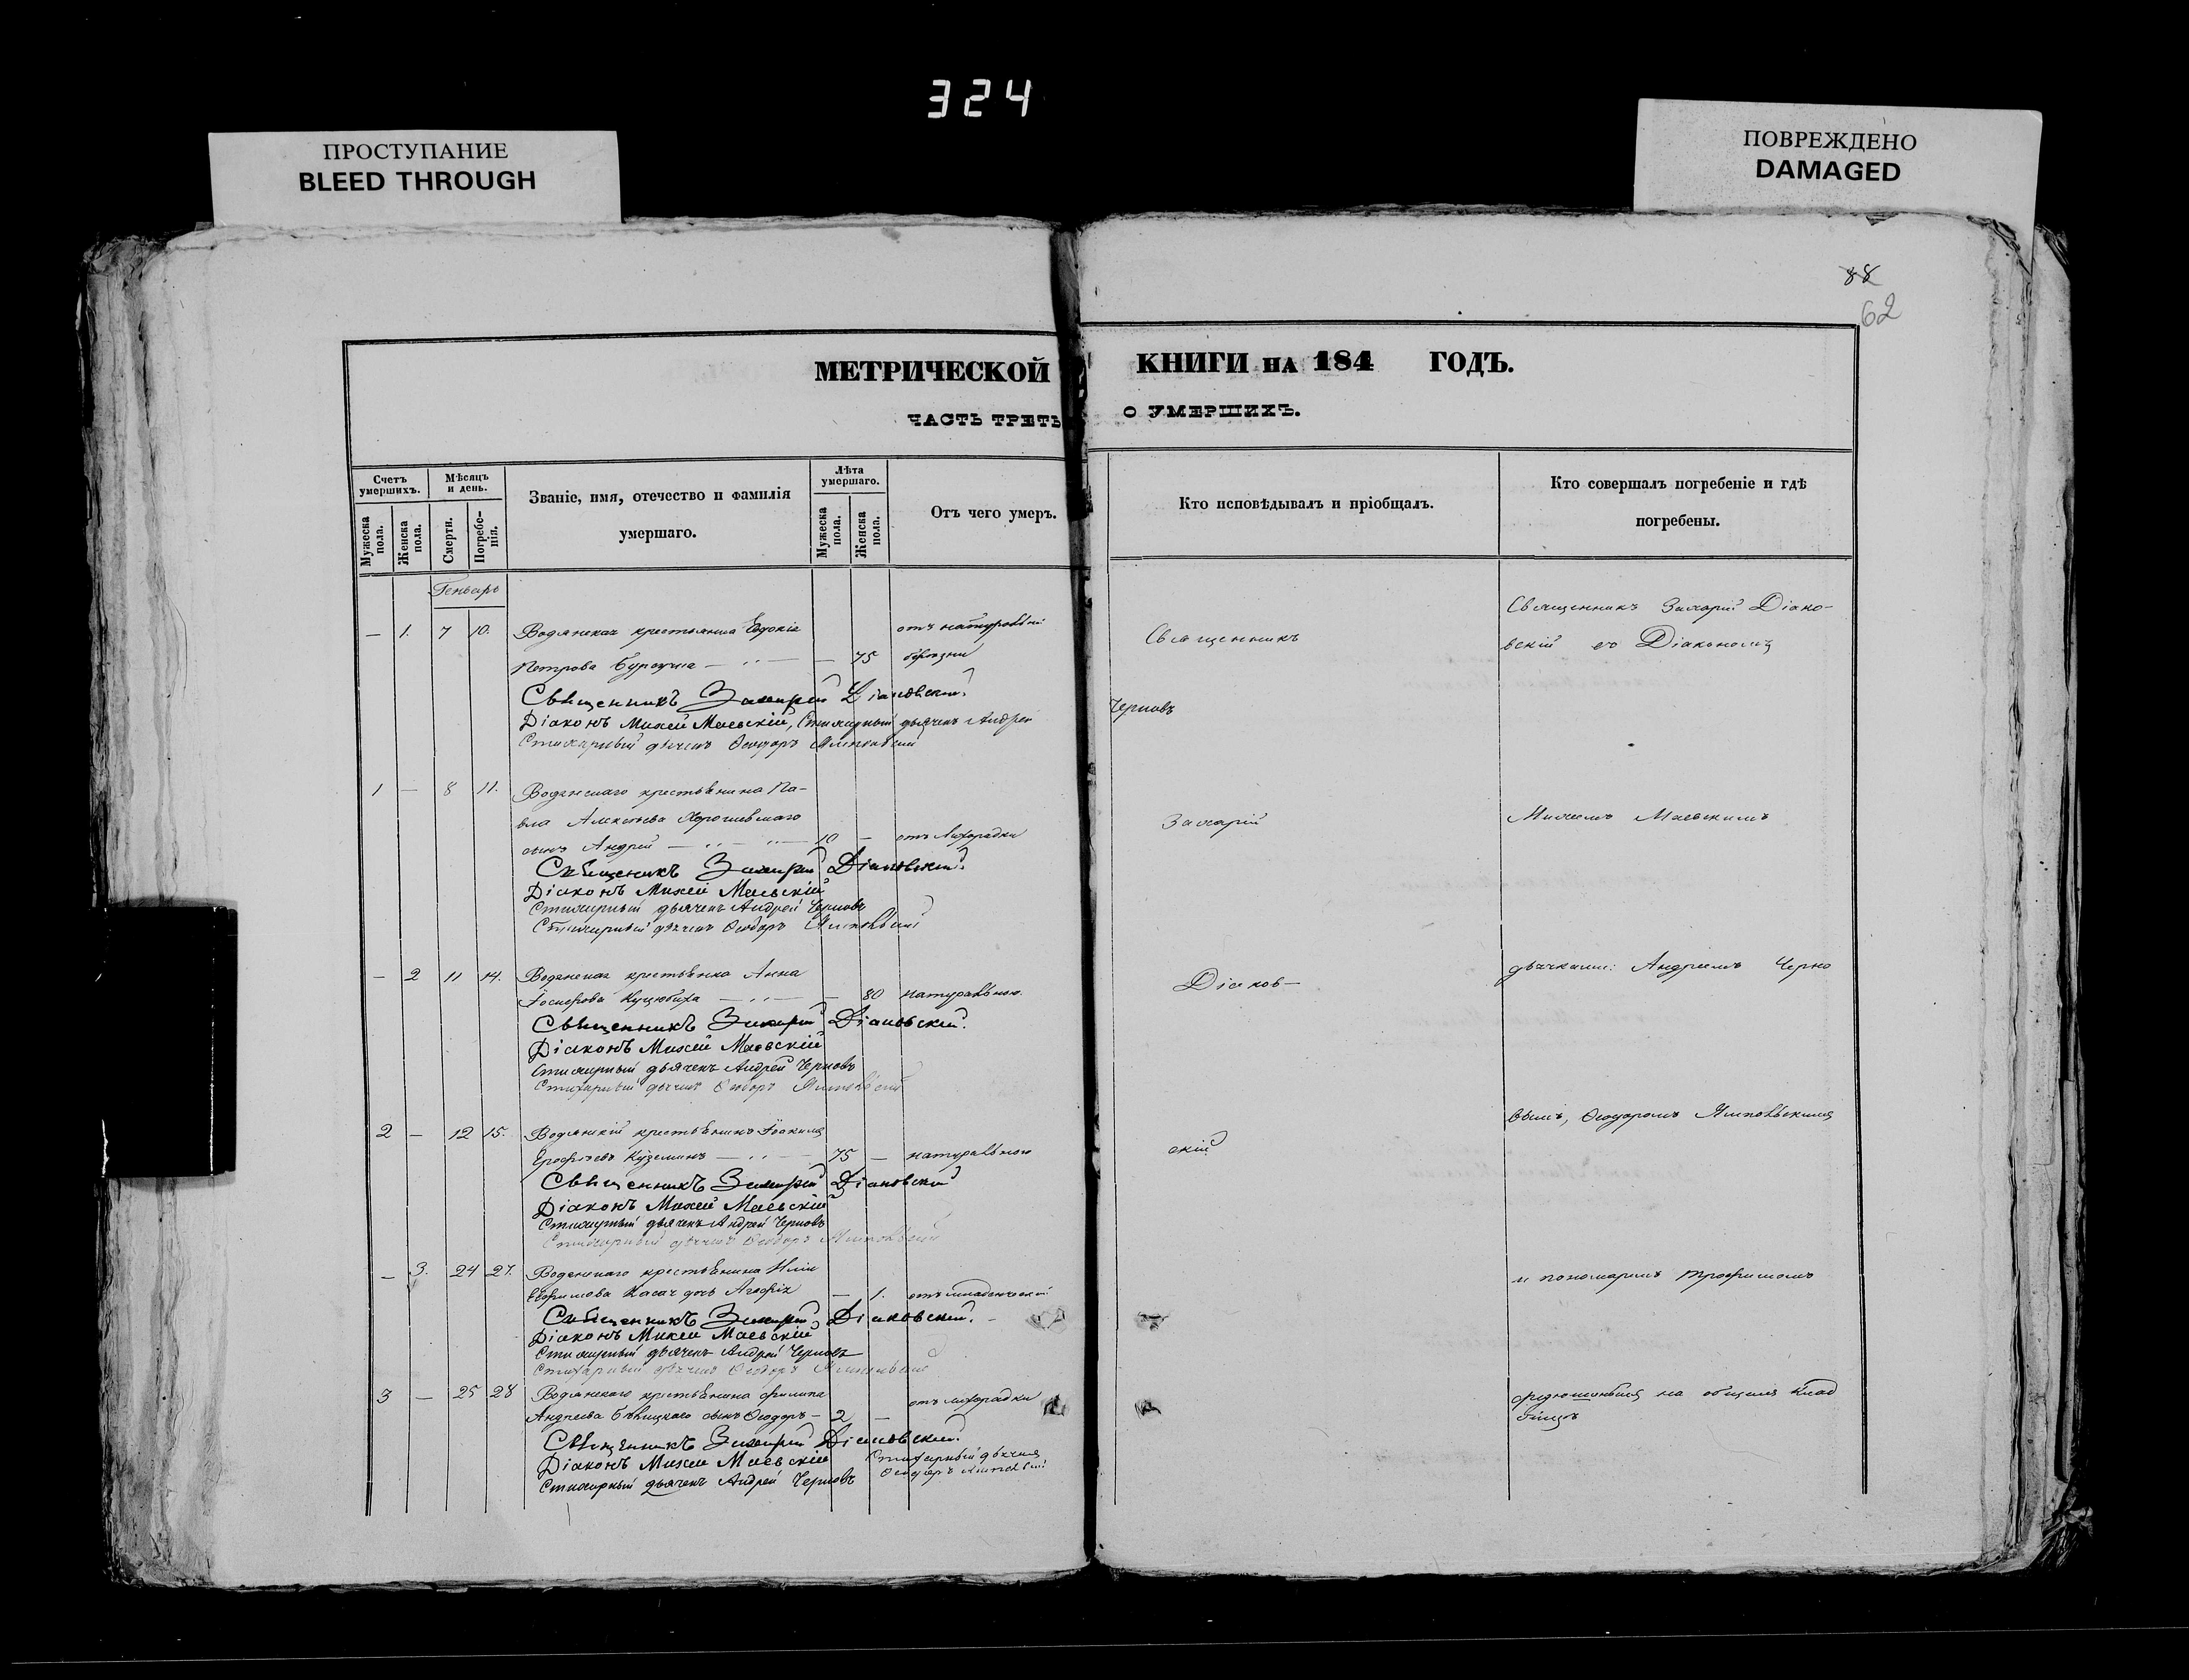 324
ПРОСТУПАНИЕ
BLEED THROUGH
ПОВРЕЖДЕНО
DAMAGED
88
62
МЕТРИЧЕСКОЙ КНИГИ НА 184 ГОДЪ.
ЧАСТЬ ТРЕТЬ О УМЕРШИХЪ.
Счетъ умершихъ.
Мужеска пола.
Женска пола.
Мѣсяцъ и день.
Смерти.
Погребенія.
Званіе, имя, отечество и фамилія
умершаго.
Лѣта умершаго.
Мужеска пола.
Женска пола.
Отъ чего умеръ.
Кто исповѣдывалъ и пріобщалъ.
Кто совершалъ погребеніе и гдѣ
погребены.
Генварь
— 1. 7 10. Водянская крестьянка Евдокія отъ натуральной
Петрова — 75 болѣзни
Священникъ Захарій Діаковскій.
Діаконъ Михей Маевскій, Стихарный дьячекъ Андрей Черновъ
Стихарный дьячекъ Ѳеодоръ
1 — 8 11. Водянскаго крестьянина Па-
вла Алексѣева
сынъ Андрей — 10 — отъ лихорадки
Священникъ Захарій Діаковскій.
Діаконъ Михей Маевскій
Стихарный дьячекъ Андрей Черновъ
Стихарный дьячекъ Ѳеодоръ
— 2 11 14. Водянская крестьянка Анна
— 80 натуральною
Священникъ Захарій Діаковскій.
Діаконъ Михей Маевскій
Стихарный дьячекъ Андрей Черновъ
Стихарный дьячекъ Ѳеодоръ
2 — 12 15. Водянскій крестьянинъ Іоакимъ
Ерофѣевъ Куземинъ — 75 — натуральною
Священникъ Захарій Діаковскій
Діаконъ Михей Маевскій
Стихарный дьячекъ Андрей Черновъ
Стихарный дьячекъ Ѳеодоръ
— 3. 24 27. Водянскаго крестьянина Иліи
дочь — 1. отъ младенческой
Священникъ Захарій Діаковскій.
Діаконъ Михей Маевскій
Стихарный дьячекъ Андрей Черновъ
Стихарный дьячекъ Ѳеодоръ
3 — 25 28 Водянскаго крестьянина Филипа
Андреева сынъ Ѳеодоръ — 2 — отъ лихорадки
Священникъ Захарій Діаковскій.
Діаконъ Михей Маевскій
Стихарный дьячекъ Андрей Черновъ
Стихарный дьячекъ
Ѳеодоръ
Священникъ
Захарій
Діаков-
скій
Священникъ Захарій Діако-
вскій со Діакономъ
Михеемъ Маевскимъ
дьячками: Андреемъ Черно
вымъ, Ѳеодоромъ
и пономаремъ Трофимомъ
на общемъ клад
бищѣ